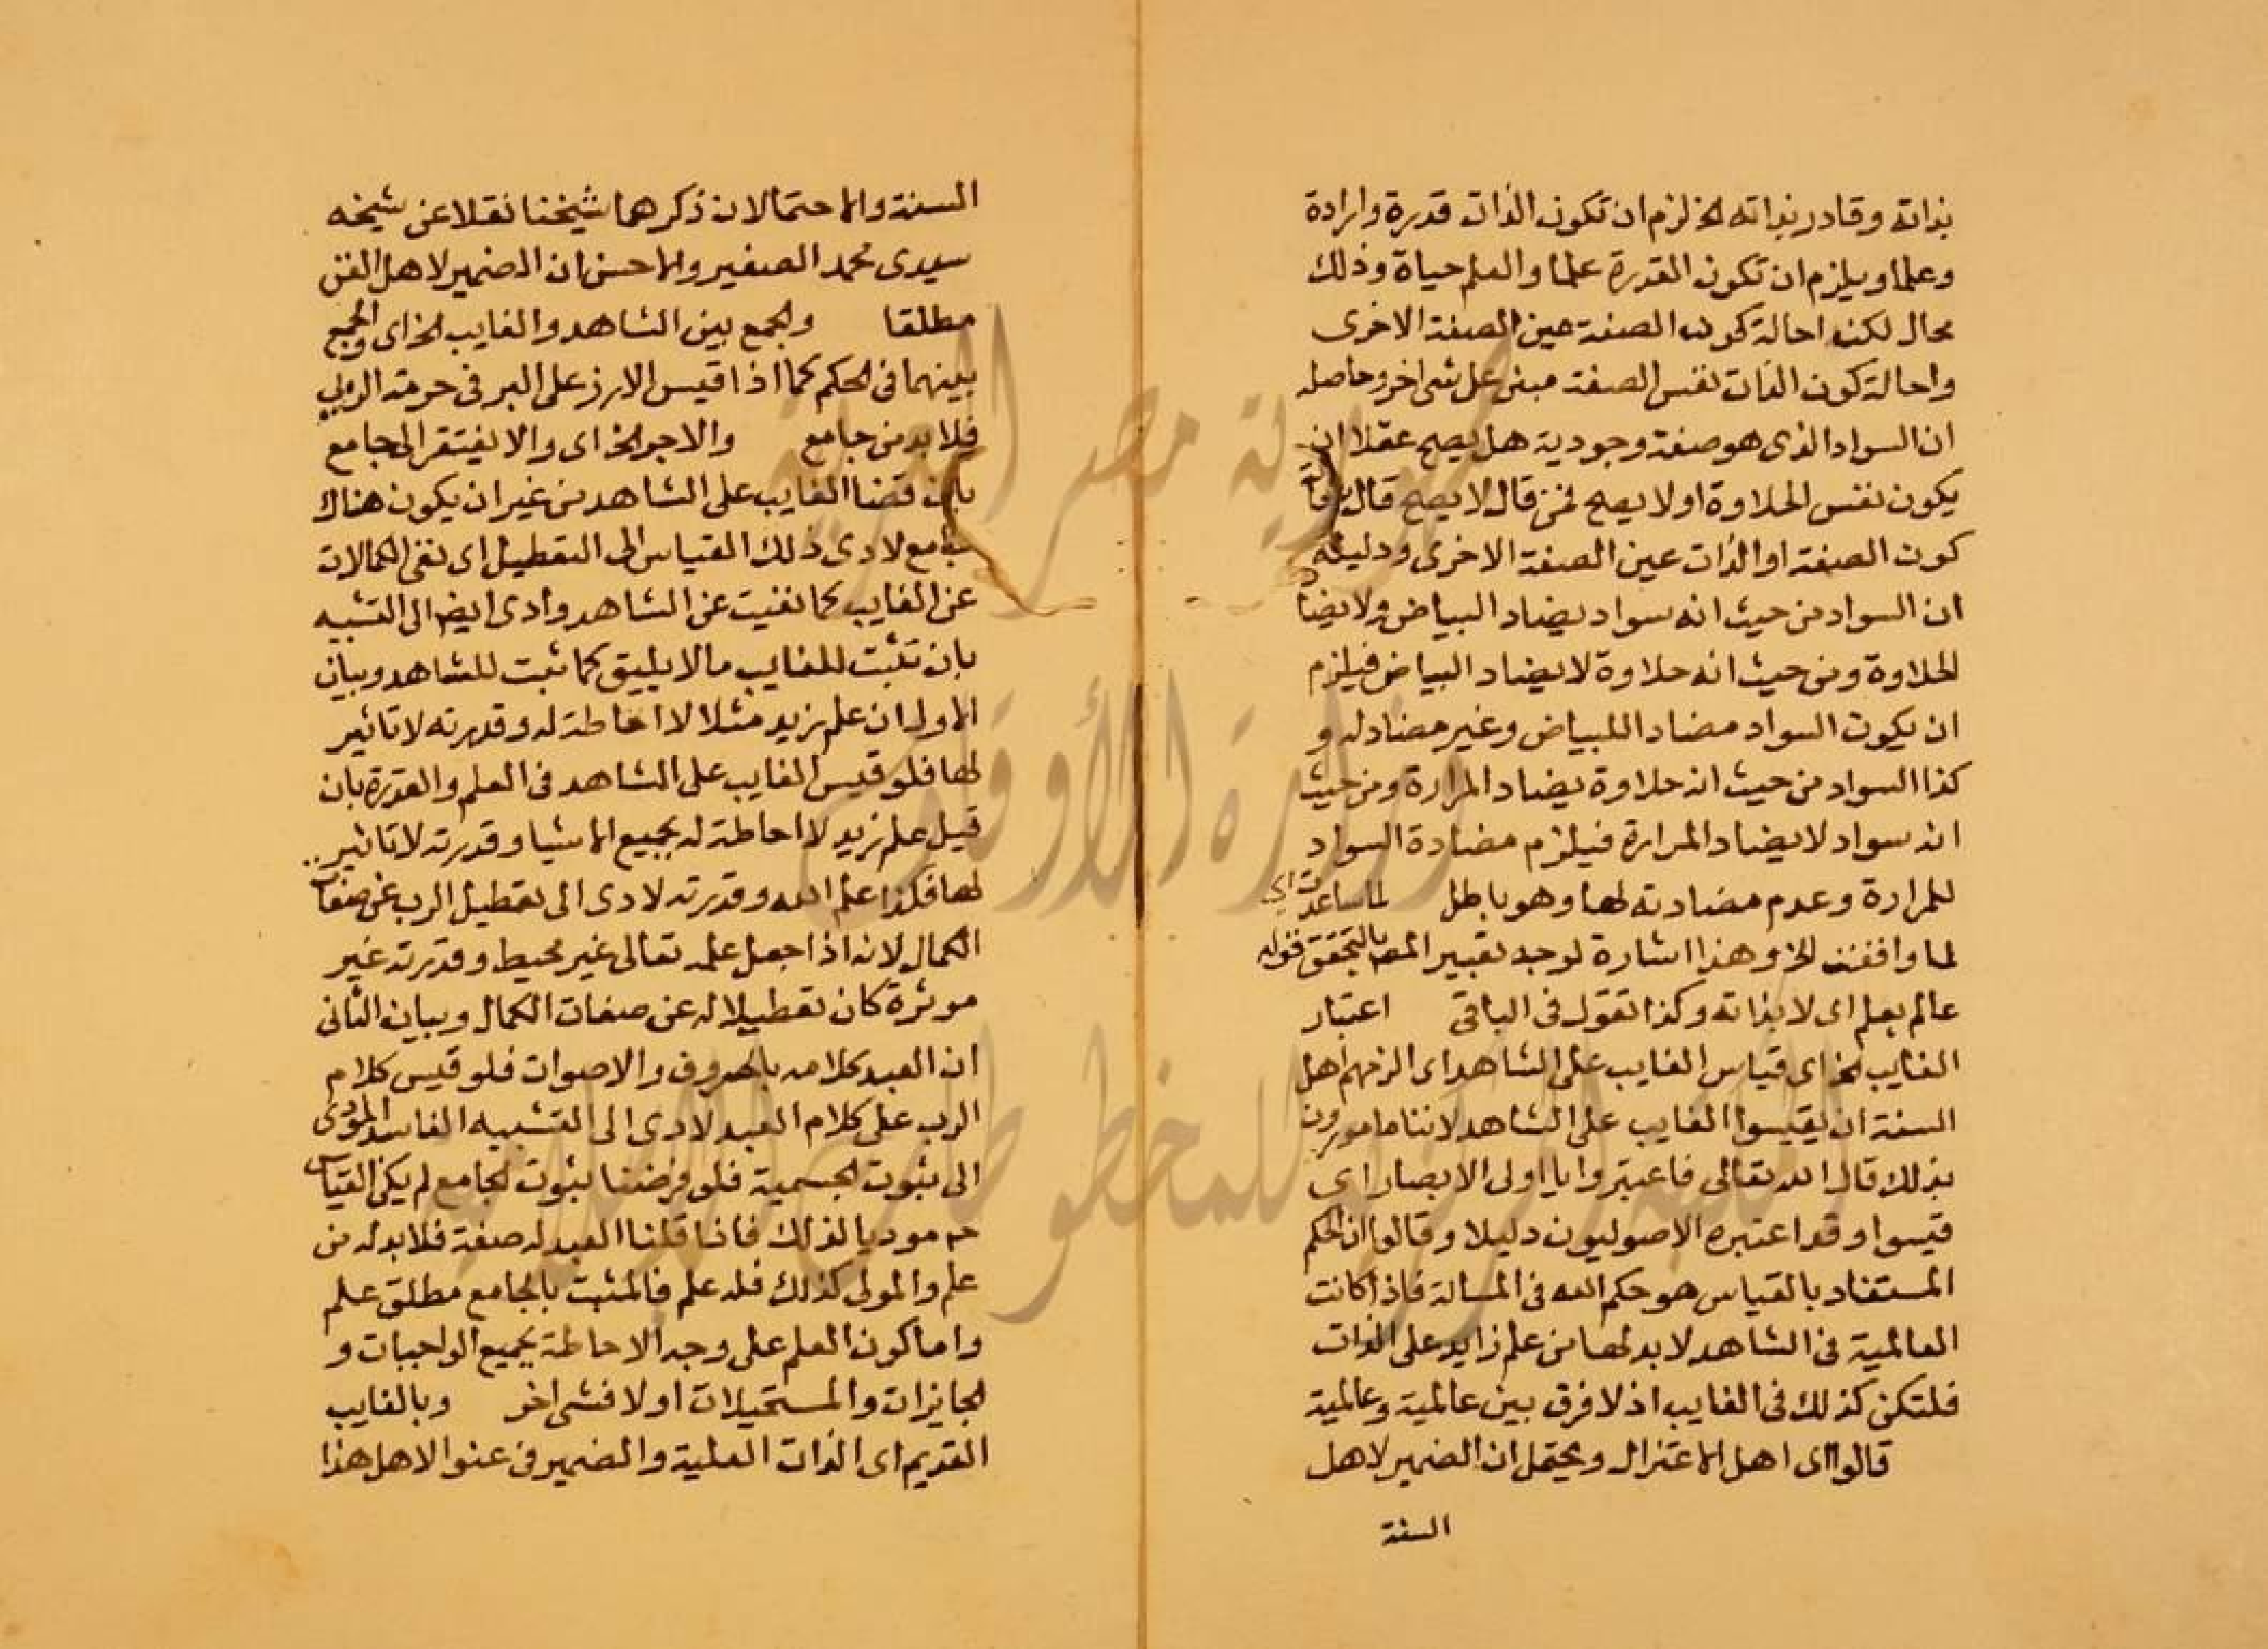 بذاته وقادر بذاته الخ لزم ان تكون الذات قدرة وارادة
وعلما ويلزم ان تكون القدرة علما والعلم حياة وذلك
محال لكن احالة كون الصفة عين الصفة الاخرى
واحالة كون الذات نفس الصفة مبنى على شى اخر وحاصله
ان السواد الذى هو صفة وجودية هل يصح عقلا ان
يكون نفس الحلاوة او لا يصح فمن قال لا يصح قال
كون الصفة او الذات عين الصفة الاخرى ودليله
ان السواد من حيث انه سواد يضاد البياض ولا يضاد
الحلاوة ومن حيث انه حلاوة لا يضاد البياض فيلزم
ان يكون السواد مضادا للبياض وغير مضاد له و
كذا السواد من حيث انه حلاوة يضاد المرارة ومن حيث
انه سواد لا يضاد المرارة فيلزم مضادة السواد
للمرارة وعدم مضادته لها وهو باطل لما ساعدت اى
لما وافقت الخ وهذا اشارة لوجه تعبير المصـ بالتحقق قوله
عالم بعلم اى لا بذاته وكذا تقول فى الباقى اعتبار
الغايب الخ اى قياس الغايب على الشاهد اى الزمهم اهل
السنة ان يقيسوا الغايب على الشاهد لاننا مامورون
بذلك قال الله تعالى فاعتبروا يا اولى الابصار اى
قيسوا وقد اعتبره الاصوليون دليلا وقالوا ان الحكم
المستفاد بالقياس هو حكم الله فى المسالة فاذا كانت
العالمية فى الشاهد لا بد لها من علم زايد على الذات
فلتكن كذلك فى الغايب اذ لا فرق بين عالمية وعالمية
قالوا اى اهل الاعتزال ويحتمل ان الضمير لاهل
السنة
السنة والاحتمالان ذكرهما شيخنا نقلا عن شيخه
سيدى محمد الصغير والاحسن ان الضمير لاهل الفن
مطلقا والجمع بين الشاهد والغايب الخ اى والجمع
بينهما فى الحكم كما اذا قيس الارز على البر فى حرمة الربى
فلا بد من جامع والا جر الخ اى والا يفتقر الى جامع
بان قسنا الغايب على الشاهد من غير ان يكون هناك
جامع لادى ذلك القياس الى التعطيل اى نفى الكمالات
عن الغايب كما نفيت عن الشاهد وادى ايضا الى التشبيه
بان تثبت للغايب ما لا يليق كما ثبت للشاهد وبيان
الاول ان علم زيد مثلا لا احاطة له وقدرته لا تاثير
لها فلو قيس الغايب على الشاهد فى العلم والقدرة بان
قيل علم زيد لا احاطة له بجميع الاشيا وقدرته لا تاثير
لها فكذا علم الله وقدرته لادى الى تعطيل الرب عن صفات
الكمال لانه اذا جعل علمه تعالى غير محيط وقدرته غير
موثرة كان تعطيلا له عن صفات الكمال وبيان الثانى
ان العبد كلامه بالحروف والاصوات فلو قيس كلام
الرب على كلام العبد لادى الى التشبيه الفاسد المودى
الى ثبوت الجسمية فلو فرضنا ثبوت الجامع لم يكن القياس
ح موديا لذلك فاذا قلنا العبد له صفة فلا بد له من
علم والمولى كذلك فله علم فالمثبت بالجامع مطلق علم
واما كون العلم على وجه الاحاطة بجميع الواجبات و
الجايزات والمستحيلات او لا فشى اخر وبالغايب
القديم اى الذات العلية والضمير فى عنوا لاهل هذا